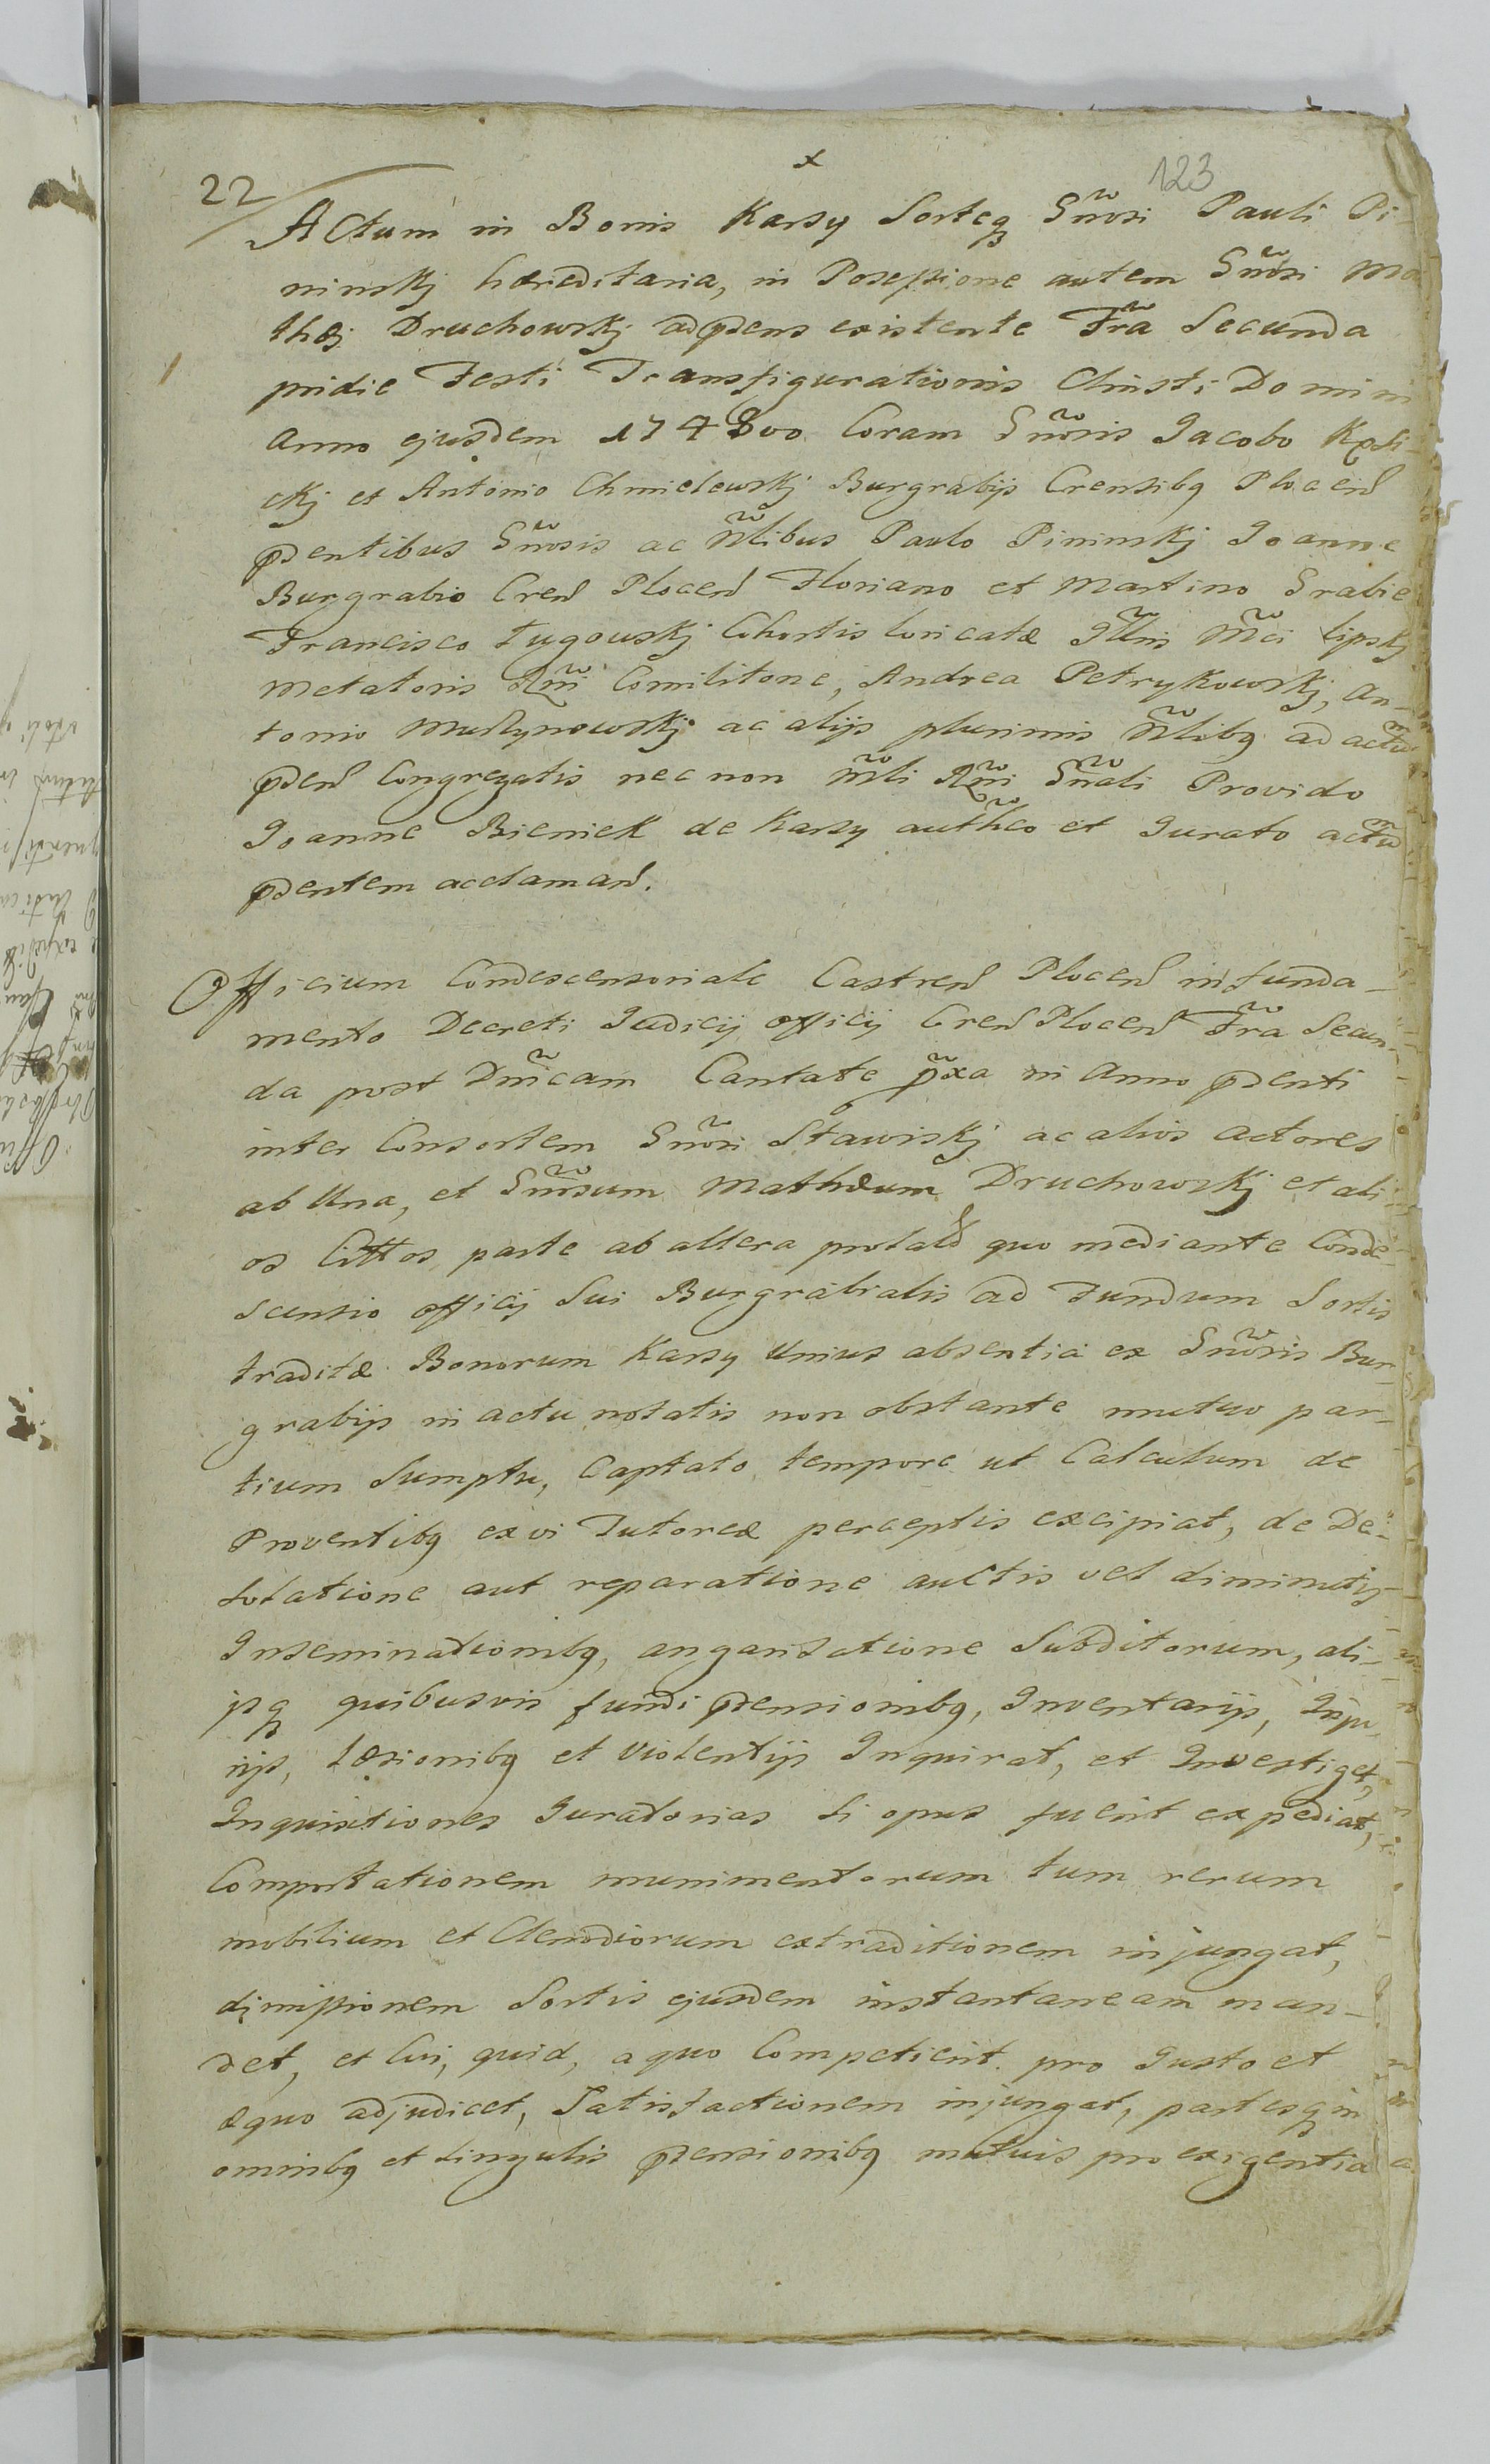 x
123
22
Actum in Bonis Karsy Sorteq Gnrosi Pauli Pi-
ninskj hæreditaria, in Posessione autem Gnrosi Ma
thæj Druchowskj adpdens existente Fra Secunda
pridie Festi Transfigurationis Christi Domini
Anno ejusdem 1748vo Coram Gnrosis Jacobo
ckj et Antonio Chmielewskj Burgrabijs Crensibq Plocen
pdentibus Gnrosis ac Nlibus Paulo Pininskj Joanne
Burgrabio Cren Plocen Floriano et Martino Grabie
Francisco Ługowskj Cohortis loricatæ Illris Mci Lipskj
Metatoris Rgni Comilitone, Andrea Petrykowskj, An-
tonio ac alijs plurimis Nlibq ad actu
pden Congregatis nec non Mli Rgni Gnrali Provido
Joanne Bieniek de Karsy authco et Jurato actu
pdentem acclaman.
Officium Condescensoriale Castren Plocen in funda-
mento Decreti Judicij officij Cren Plocen Fra Secun-
da post Dnicam Cantate pxa in Anno pdenti
inter Consortem Gnrosi Stawiskj ac alios actores
ab Una, et Gnrosum Mathæum Druchowskj et ali-
os Cittos parte ab altera prolato quo mediante Conde-
scensio officij Sui Burgrabialis ad Fundum Sortis
traditæ Bonorum Karsy Unius absentia ex Gnrosis Bur-
grabijs in actu notatis non obstante mutuo par-
tium Sumptu, Captato tempore ut Calculum de
Proventibq ex vi Tutoreæ perceptis excipiat, de De-
solatione aut reparatione auctis vel diminutis
Inseminationibq, angarisatione Subditorum, ali-
jsq quibusvis fundi ptensionibq, Inventarijs, Inju-
rijs, læsionibq et Violentijs Inquirat, et Investiget,
Inquisitiones Juratorias si opus fuerit expediat,
Comportationem munimentorum tum rerum
mobilium et Clenodiorum extraditionem injungat,
dimissionem Sortis ejusdem instantaneam man-
det, et Cui, quid, a quo Competierit pro Justo et
æquo adjudicet, Satisfactionem injungat, partesq in
omnibq et singulis ptensionibq mutuis pro exigentia